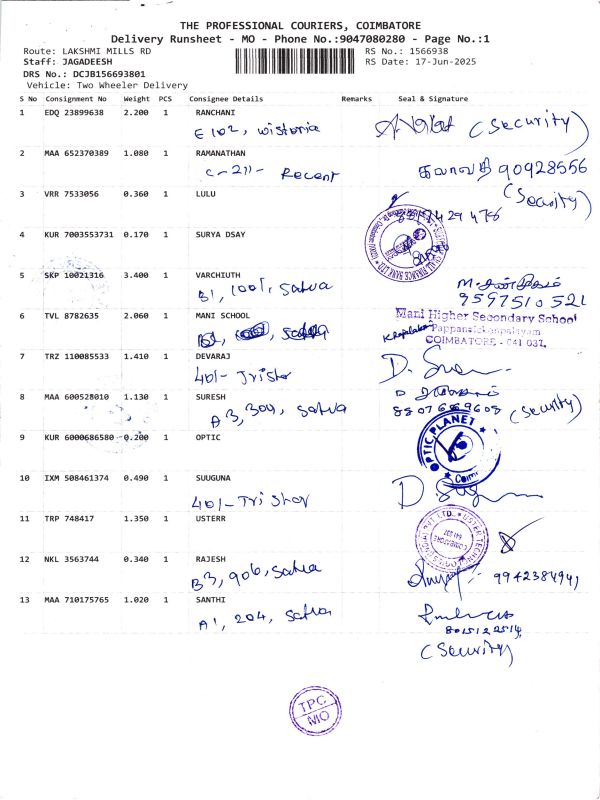 THE PROFESSIONAL COURIERS, COIMBATORE
Delivery Runsheet - MO - Phone No.:9047080280 - Page No.:1
Route: LAKSHMI MILLS RD
RS No.: 1566938
Staff: JAGADEESH
RS Date: 17-Jun-2025
DRS No.: DCJB156693801
Vehicle: Two Wheeler Delivery
S No Consignment No Weight PCS Consignee Details Remarks Seal & Signature
1 EDQ 23899638 2.200 1 RANCHANI
E 102, wistoria (Security)
2 MAA 652370389 1.080 1 RAMANATHAN
C-211- Recent 90928556
(Security)
3 VRR 7533056 0.360 1 LULU
4 KUR 7003553731 0.170 1 SURYA DSAY
5 SKP 10021316 3.400 1 VARCHIUTH
B1, 1001, Satva
9597510521
6 TVL 8782635 2.060 1 MANI SCHOOL
Mani Higher Secondary School
Pappanaickenpalayam
COIMBATORE - 641 037.
7 TRZ 110085533 1.410 1 DEVARAJ
401- Tristor
8 MAA 600528010 1.130 1 SURESH
A3, 304, Satva
8807689608 (Security)
9 KUR 6000686580 0.200 1 OPTIC
OPTIC PLANET
10 IXM 508461374 0.490 1 SUUGUNA
401- Tristor
11 TRP 748417 1.350 1 USTERR
12 NKL 3563744 0.340 1 RAJESH
B3, 906, Satva 9942384941
13 MAA 710175765 1.020 1 SANTHI
A1, 204, Satva
8015122514
(Security)
TPC
MO